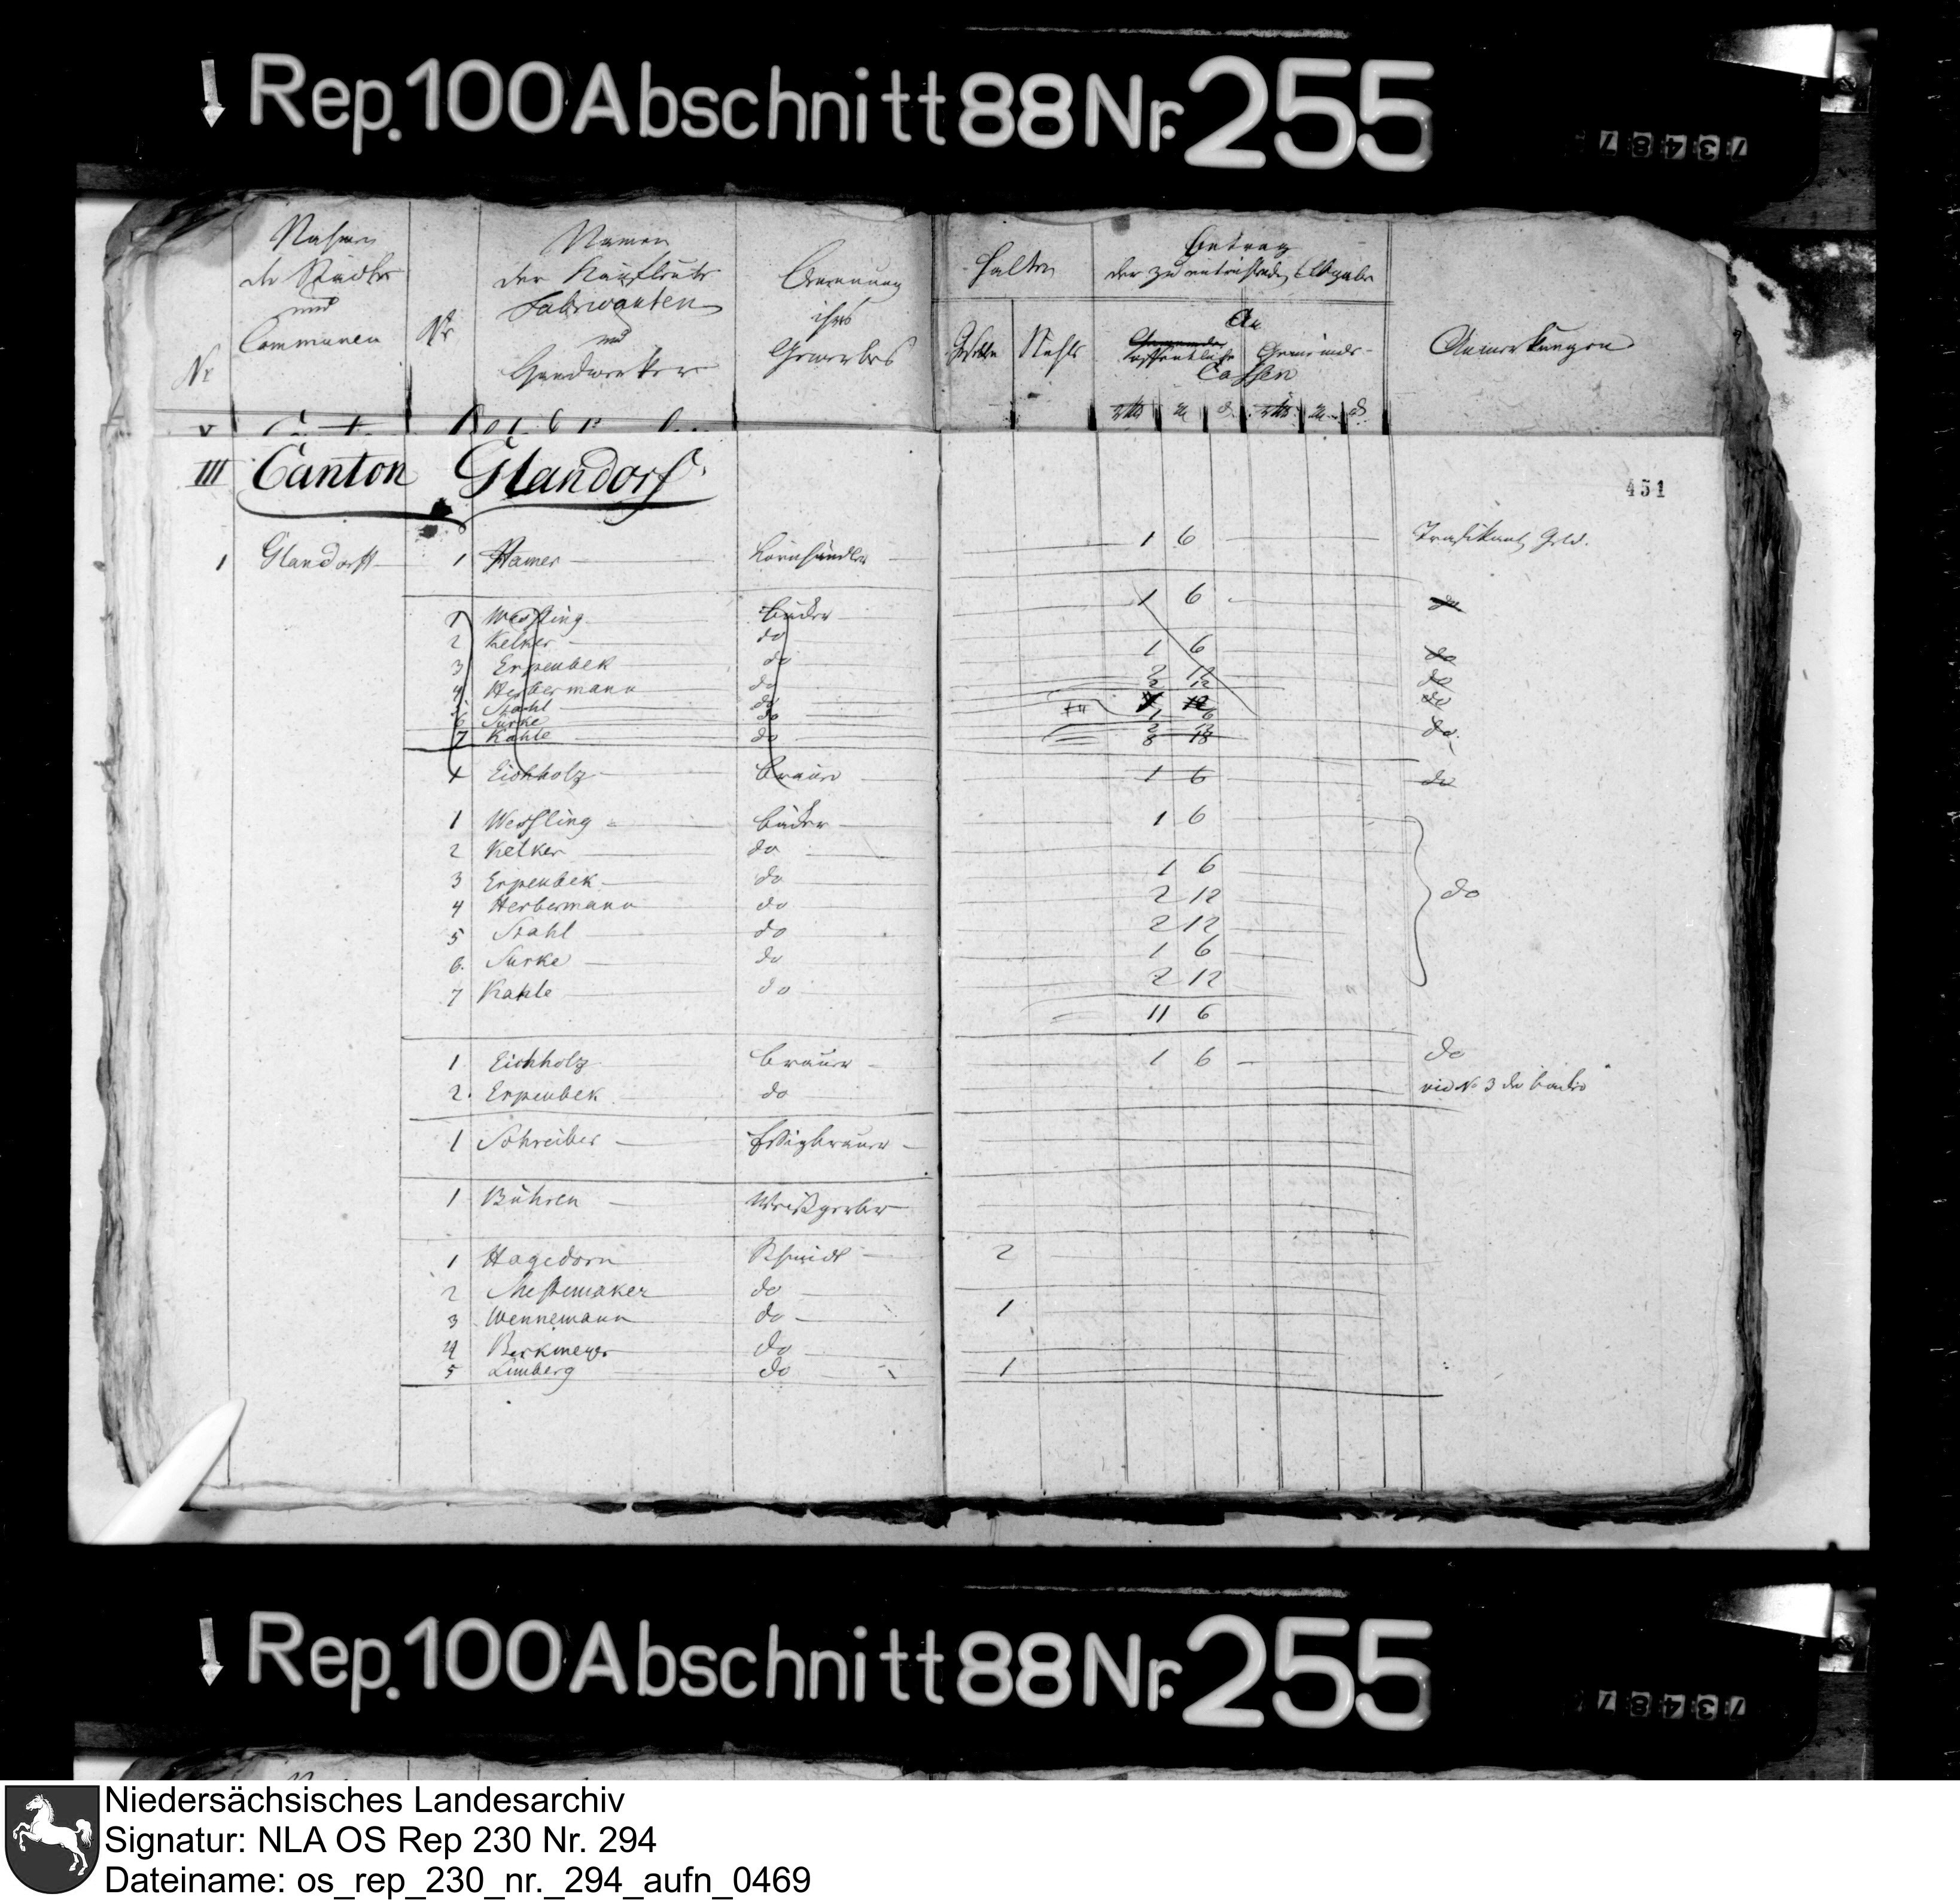 Rep. 100 Abschnitt 88 Nr. 255
73487
Nahmen der Städte und Communen
Nr
Nr
Namen der Kaufleute Fabricanten und Handwerker
Benennung ihres Gewerbes
Halten
Gesellen
Knechte
Betrag der zu entrichtenden Abgabe
An
öffentliche Gemeinde-
Cassen
Anmerkungen
III Canton Glandorf.
451
1 Glandorff 1 Hamer Kornhändler 1 6
1 Wessling Bäcker 1 6 do
2 Kelker do 1 6 do
3 Erpenbek do 2 12 do
4 Herbermann do 2 12 do
5 Stahl do
6 Surke do 1 6
7 Kahle do do
1 Eichholz Brauer 1 6 do
1 Wessling Bäcker 1 6
2 Kelker do 1 6
3 Erpenbek do 2 12 do
4 Herbermann do 2 12
5 Stahl do 1 6
6. Surke do 2 12
7 Kahle do
11 6
1. Eichholz Brauer 1 6 do
2. Erpenbek do vid No 3 der Bäcker
1 Schreiber Essigbrauer
1 Bühren Weißgerber
1 Hagedorn Schmidt 2
2 Mestemaker do
3 Wennemann do 1
4 Berkmeyer do
5 Limberg do 1
Rep. 100 Abschnitt 88 Nr. 255
73487
Niedersächsisches Landesarchiv
Signatur: NLA OS Rep 230 Nr. 294
Dateiname: os_rep_230_nr._294_aufn_0469